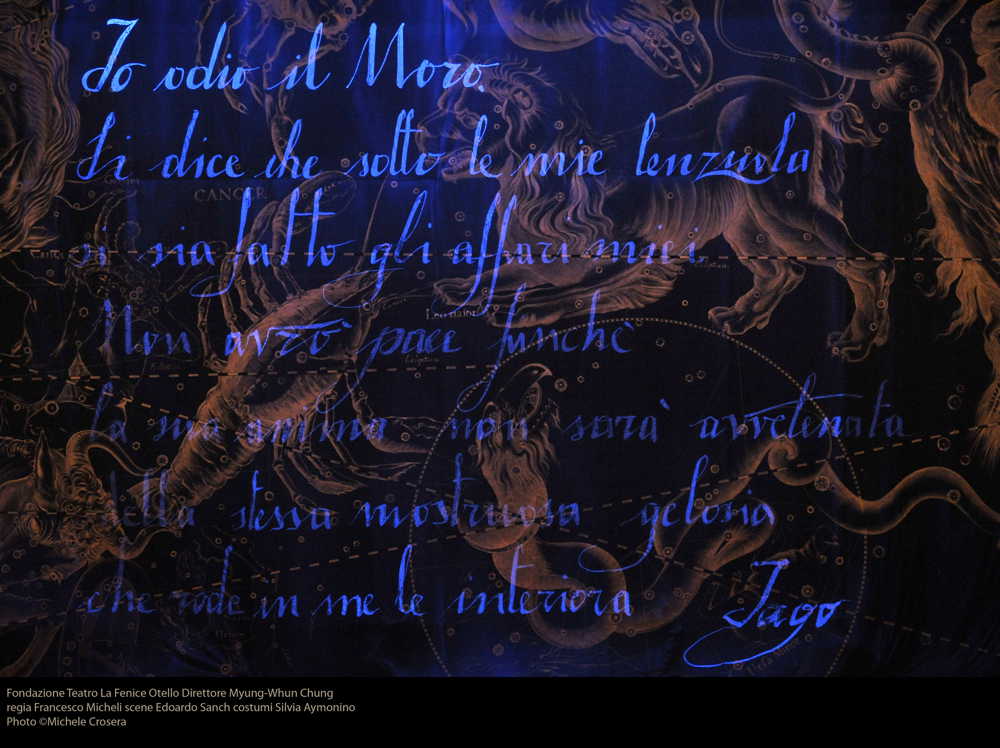 Io odio il Moro.
Si dice che sotto le mie lenzuola
si sia fatto gli affari miei.
CANCER
Non avrò pace finchè
la sua anima non sarà avvelenata
della stessa mostruosa gelosia
che rode in me le interiora
Jago
Fondazione Teatro La Fenice Otello Direttore Myung-Whun Chung
regia Francesco Micheli scene Edoardo Sanch costumi Silvia Aymonino
Photo ©Michele Crosera